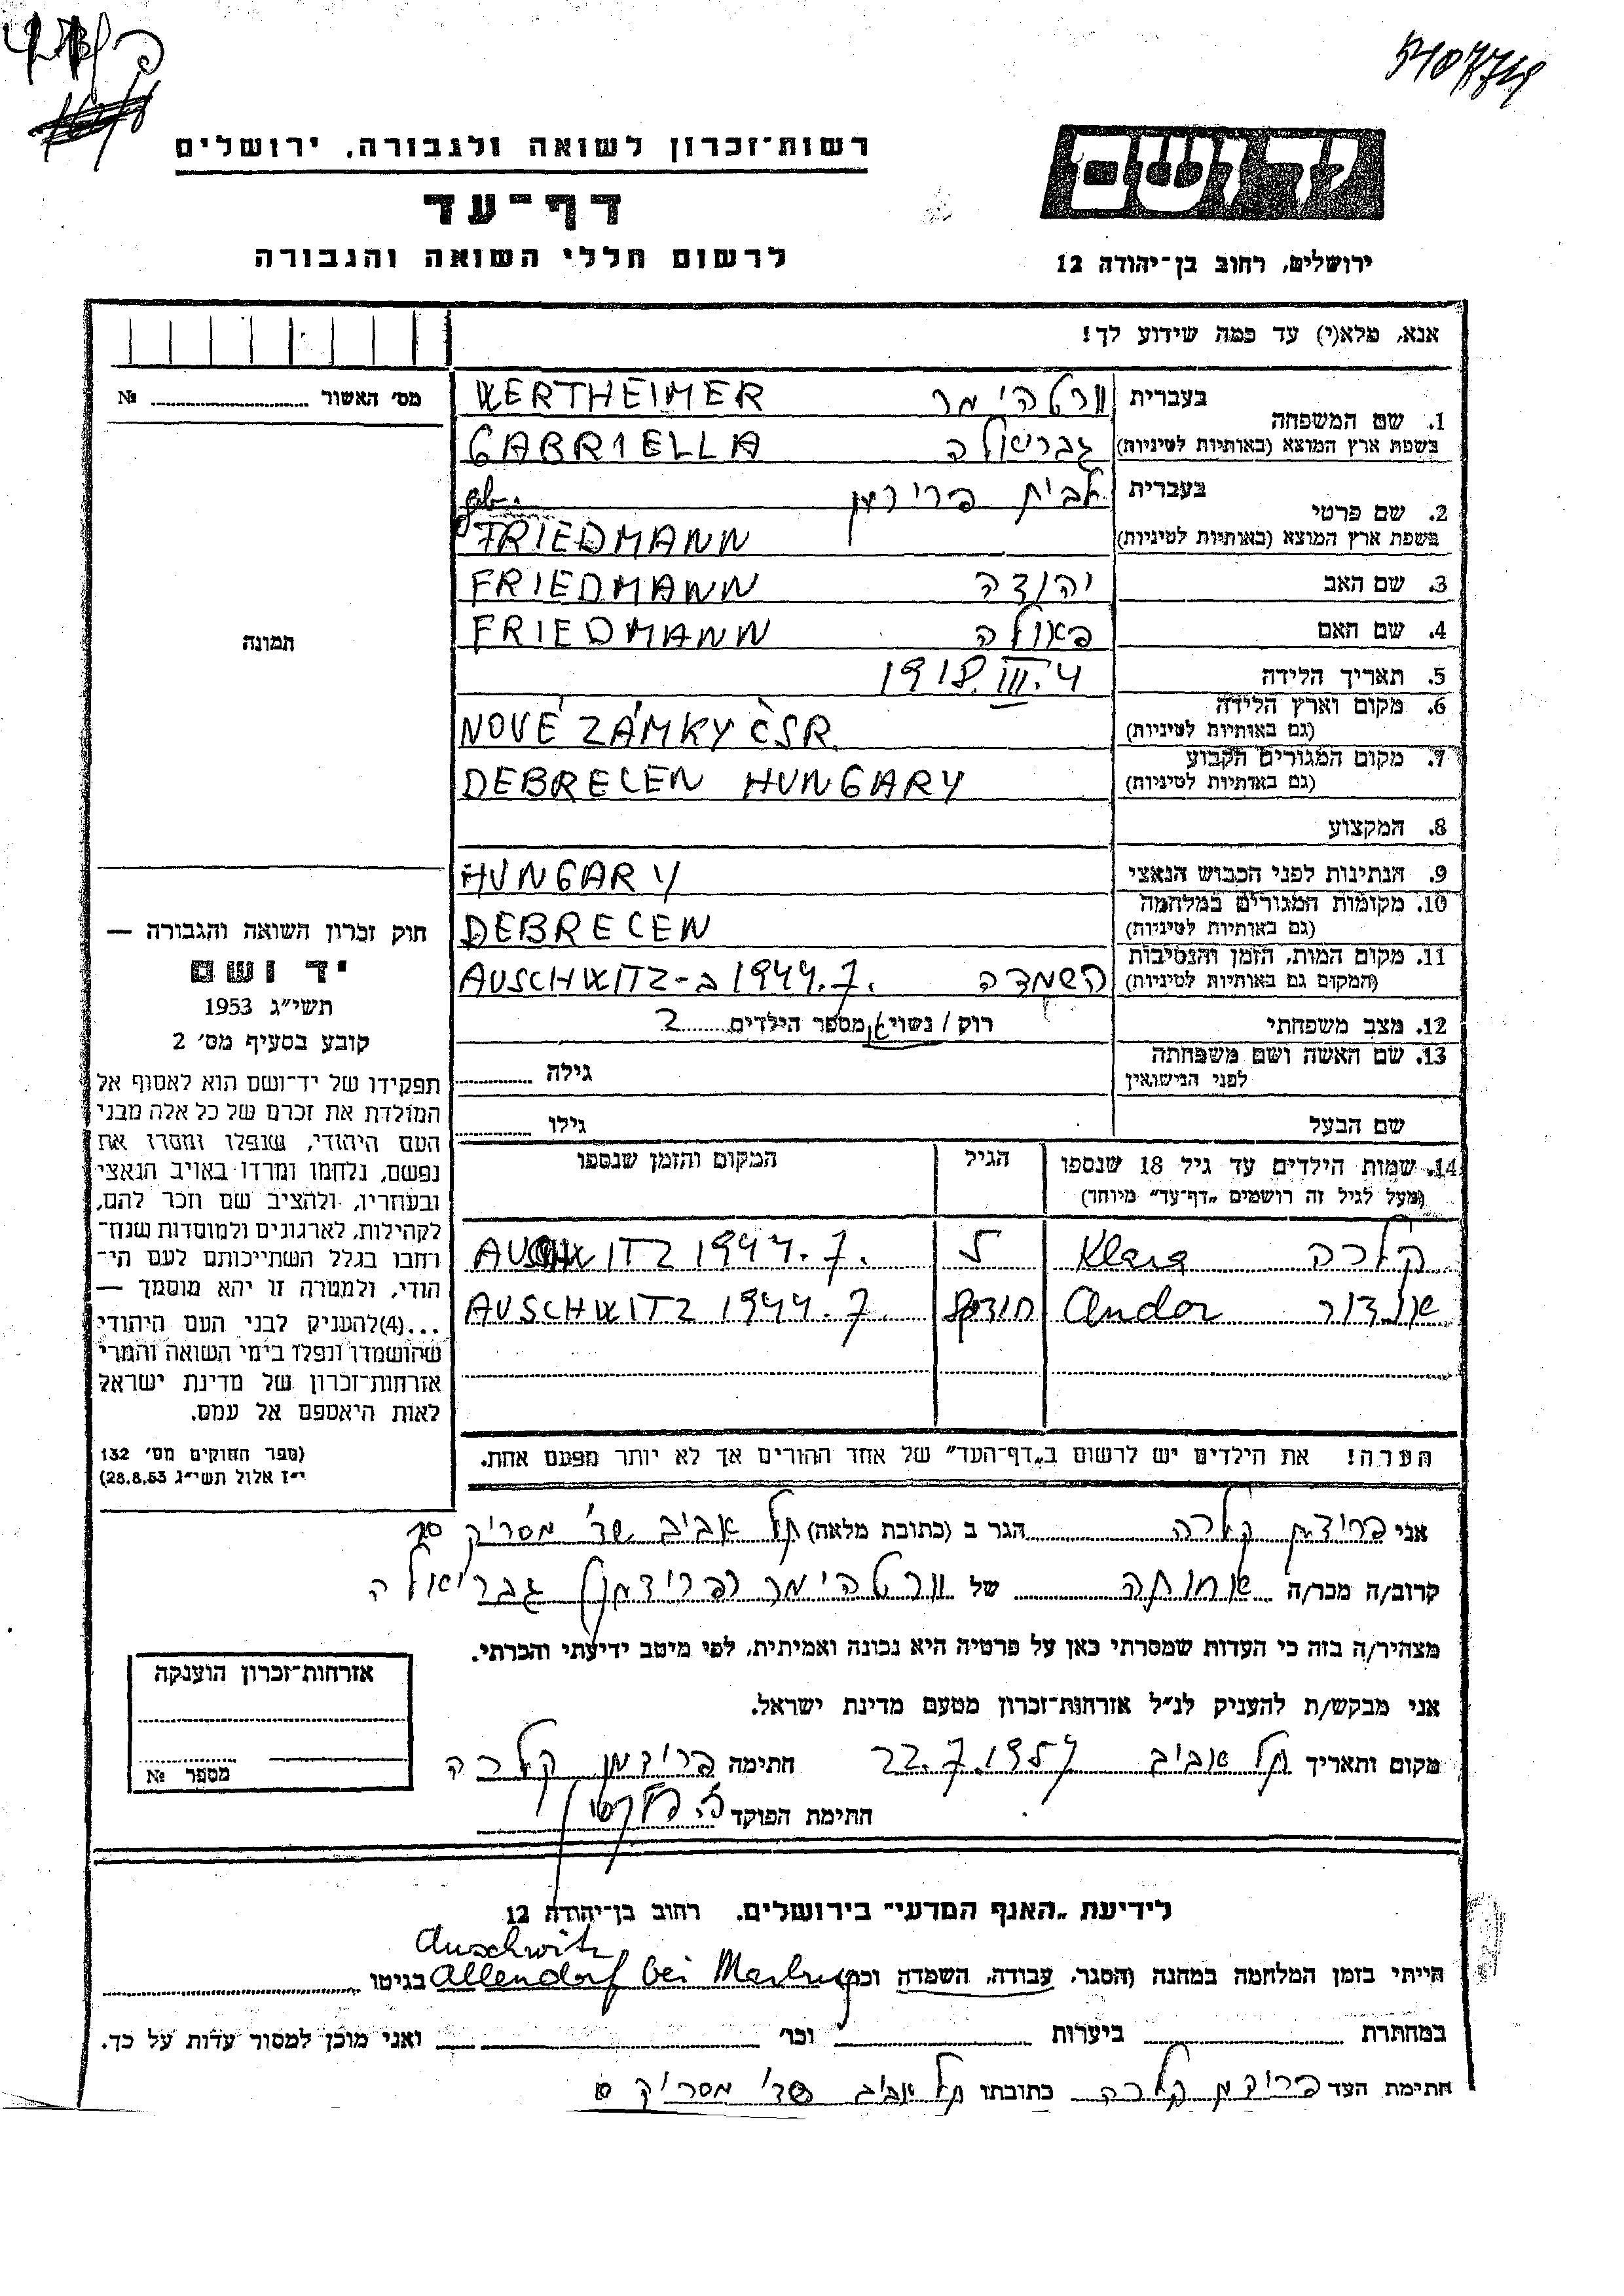 5407748
רשות־זכרון לשואה ולגבורה, ירושלים
דף־עד
לרשום חללי השואה והגבורה
יד ושם
ירושלים, רחוב בן־יהודה 12
אנא, מלא(י) עד כמה שידוע לך!
מס׳ האשור № ..........
1. שם המשפחה בעברית ורטהימר WERTHEIMER
בשפת ארץ המוצא (באותיות לטיניות) גבריאלה GABRIELLA
2. שם פרטי בעברית לבית פרידמן geb.
בשפת ארץ המוצא (באותיות לטיניות) FRIEDMANN
3. שם האב יהודה FRIEDMANN
4. שם האם פאולה FRIEDMANN
5. תאריך הלידה 1918.III.4
6. מקום וארץ הלידה
(גם באותיות לטיניות) NOVÉ ZÁMKY ČSR
7. מקום המגורים הקבוע
(גם באותיות לטיניות) DEBRECEN HUNGARY
8. המקצוע
9. הנתינות לפני הכבוש הנאצי HUNGARY
10. מקומות המגורים במלחמה
(גם באותיות לטיניות) DEBRECEN
11. מקום המות, הזמן והנסיבות
(המקום גם באותיות לטיניות) השמדה AUSCHWITZ-ב 1944.7.
12. מצב משפחתי רוק / נשוי אה מספר הילדים 2
13. שם האשה ושם משפחתה
לפני הנישואין גילה ..........
שם הבעל גילו ..........
14. שמות הילדים עד גיל 18 שנספו הגיל המקום והזמן שנספו
(מעל לגיל זה רושמים „דף־עד” מיוחד)
קלרה Klara 5 AUSCHWITZ 1944.7.
אנדור Andor AUSCHWITZ 1944.7.
הערה! את הילדים יש לרשום ב„דף־העד” של אחד ההורים אך לא יותר מפעם אחת.
תמונה
חוק זכרון השואה והגבורה —
יד ושם
תשי״ג 1953
קובע בסעיף מס׳ 2
תפקידו של יד־ושם הוא לאסוף אל
המולדת את זכרם של כל אלה מבני
העם היהודי, שנפלו ומסרו את
נפשם, נלחמו ומרדו באויב הנאצי
ובעוזריו, ולהציב שם וזכר להם,
לקהילות, לארגונים ולמוסדות שנח־
רחבו בגלל השתייכותם לעם הי־
הודי, ולמטרה זו יהא מוסמך —
...(4)להעניק לבני העם היהודי
שהושמדו ונפלו בימי השואה והמרי
אזרחות־זכרון של מדינת ישראל
לאות היאספם אל עמם.
(ספר החוקים מס׳ 132
י״ז אלול תשי״ג 28.8.53)
אני פרידמן קלרה הגר ב (כתובת מלאה) תל אביב שד׳ מסריק
קרוב/ה מכר/ה אחותה של ורטהימר (פרידמן) גבריאלה
מצהיר/ה בזה כי העדות שמסרתי כאן על פרטיה היא נכונה ואמיתית, לפי מיטב ידיעתי והכרתי.
אני מבקש/ת להעניק לנ״ל אזרחות־זכרון מטעם מדינת ישראל.
מקום ותאריך תל אביב 22.7.1957 חתימה פרידמן קלרה
חתימת הפוקד
אזרחות־זכרון הוענקה
מספר №
לידיעת „האנף המדעי” בירושלים. רחוב בן־יהודה 12
Auschwitz
הייתי בזמן המלחמה במחנה (הסגר, עבודה, השמדה וכו׳) Allendorf bei Marburg בגיטו ..........
במחתרת .......... ביערות .......... וכו׳ .......... ואני מוכן למסור עדות על כך.
חתימת העד פרידמן קלרה כתובתו תל אביב שד׳ מסריק